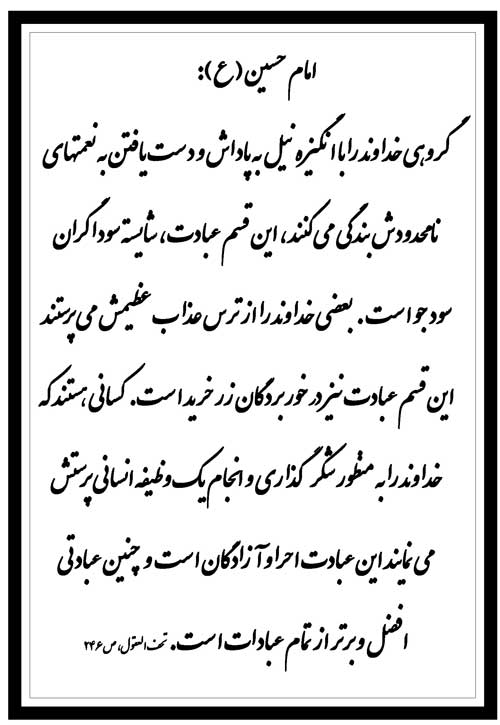 امام حسین (ع):
گروهی خداوند را با انگیزه نیل به پاداش و دست یافتن به نعمتهای
نامحدودش بندگی می کنند، این قسم عبادت، شایسته سوداگران
سودجو است. بعضی خداوند را از ترس عذاب عظیمش می پرستند
این قسم عبادت نیز در خور بردگان زر خرید است. کسانی هستند که
خداوند را به منظور شکر گذاری و انجام یک وظیفه انسانی پرستش
می نمایند این عبادت احرار و آزادگان است و چنین عبادتی
افضل و برتر از تمام عبادات است. تحف العقول، ص ۲۴۶